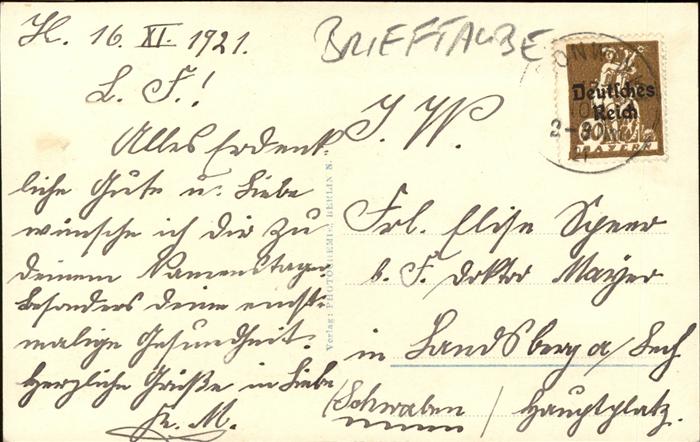 H. 16. XI. 1921.
L. F.!
Alles Erdenk-
liche Gute u. Liebe
wünsche ich dir zu
deinem Namenstage.
besonders deine
malige Gesundheit.
Herzliche Grüße in Liebe
Fr. M.
BRIEFTAUBE
Deutsches
Reich
BAYERN
J. W.
Frl. Elise Speer
b. F. Doktor Mayer
in Landsberg a/Lech
/Schwaben/ Hauptplatz.
Verlag: PHOTOCHEMIE, BERLIN N.